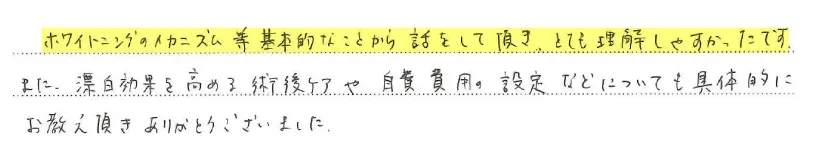 ホワイトニングのメカニズム等基本的なことから話をして頂き、とても理解しやすかったです。
また、漂白効果を高める術後ケアや自費費用の設定などについても具体的に
お教え頂きありがとうございました。